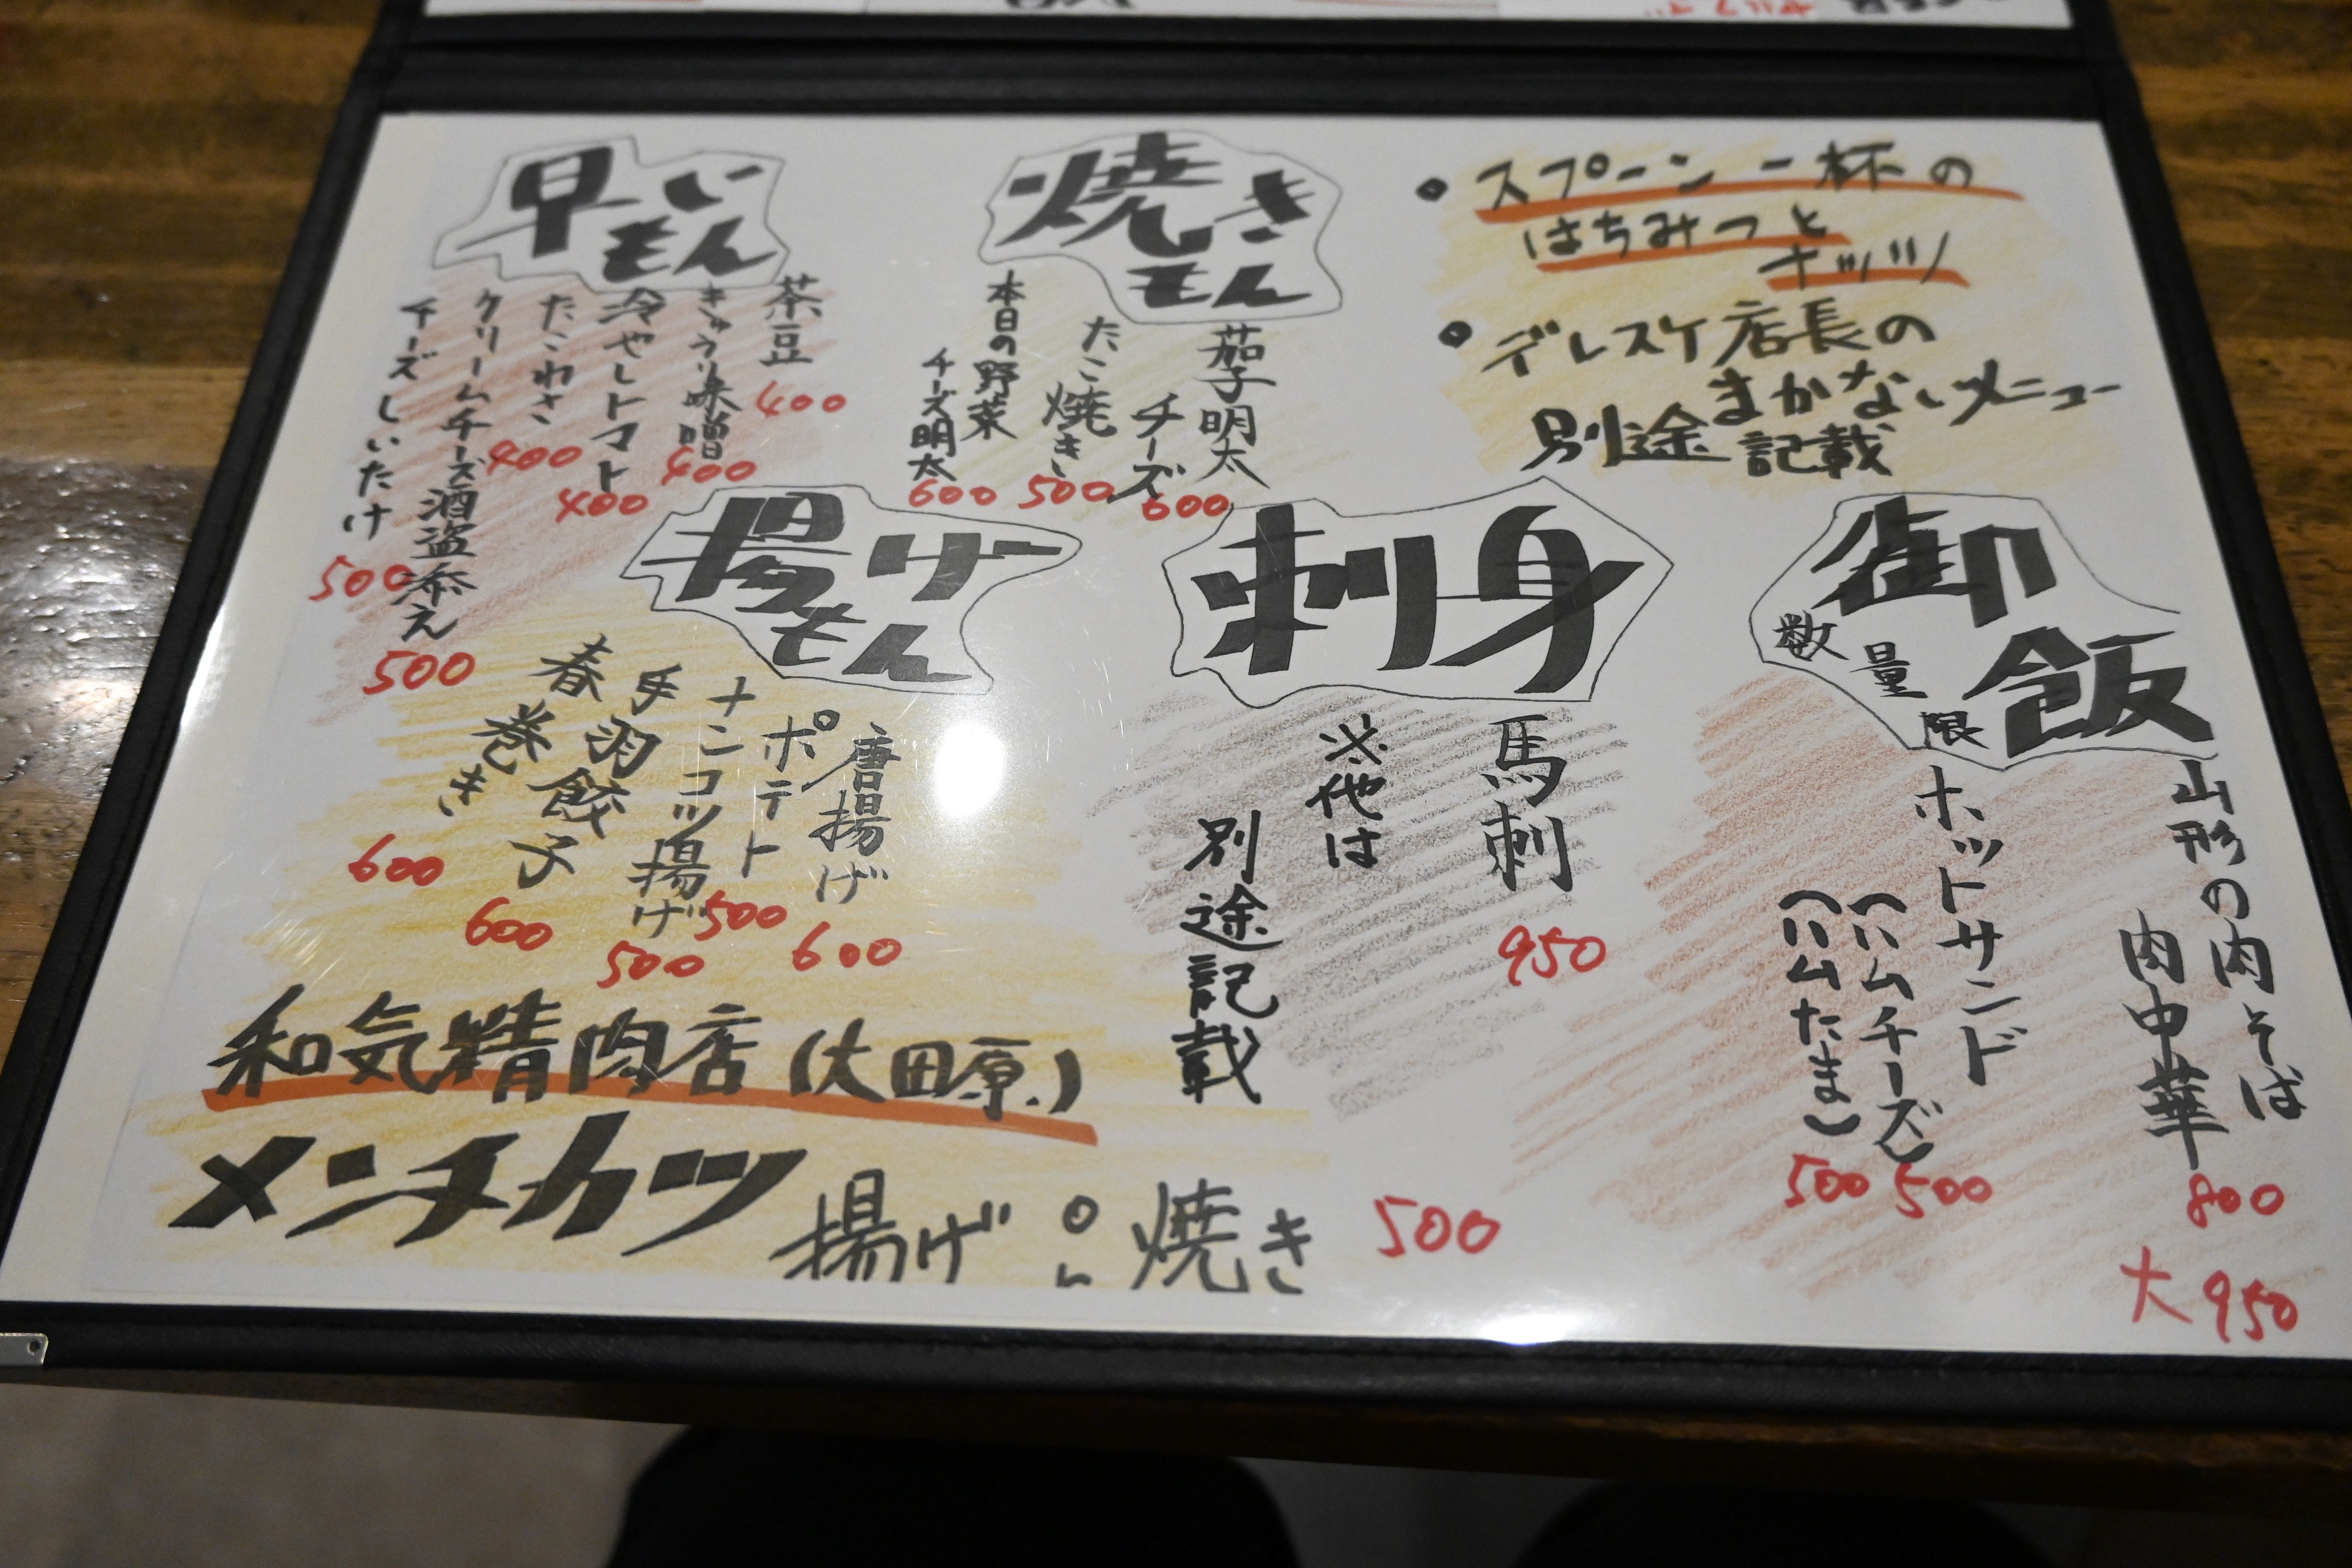 早い
もん
茶豆 400
きゅうり味噌 400
冷やしトマト 400
たこわさ 400
クリームチーズ酒盗添え 500
チーズしいたけ 500
焼き
もん
茄子明太
チーズ 600
たこ焼き 500
本日の野菜
チーズ明太 600
・スプーン一杯の
はちみつと
ナッツ
・デレスケ店長の
まかないメニュー
別途記載
揚げ
もん
唐揚げ 600
ポテト 500
ナンコツ揚げ 500
手羽餃子 600
春巻き 600
刺身
馬刺 950
※他は
別途記載
御飯
数量限
山形の肉そば
肉中華 800
大 950
ホットサンド
(ハムチーズ) 500
(ハムたま) 500
和気精肉店(大田原)
メンチカツ 揚げ or 焼き 500